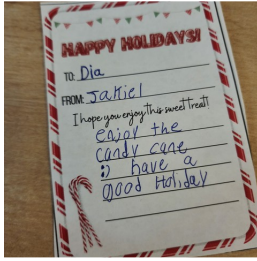 HAPPY HOLIDAYS!
TO: Dia
FROM: Jakiel
I hope you enjoy this sweet treat!
enjoy the
candy cane
:) have a
good Holiday